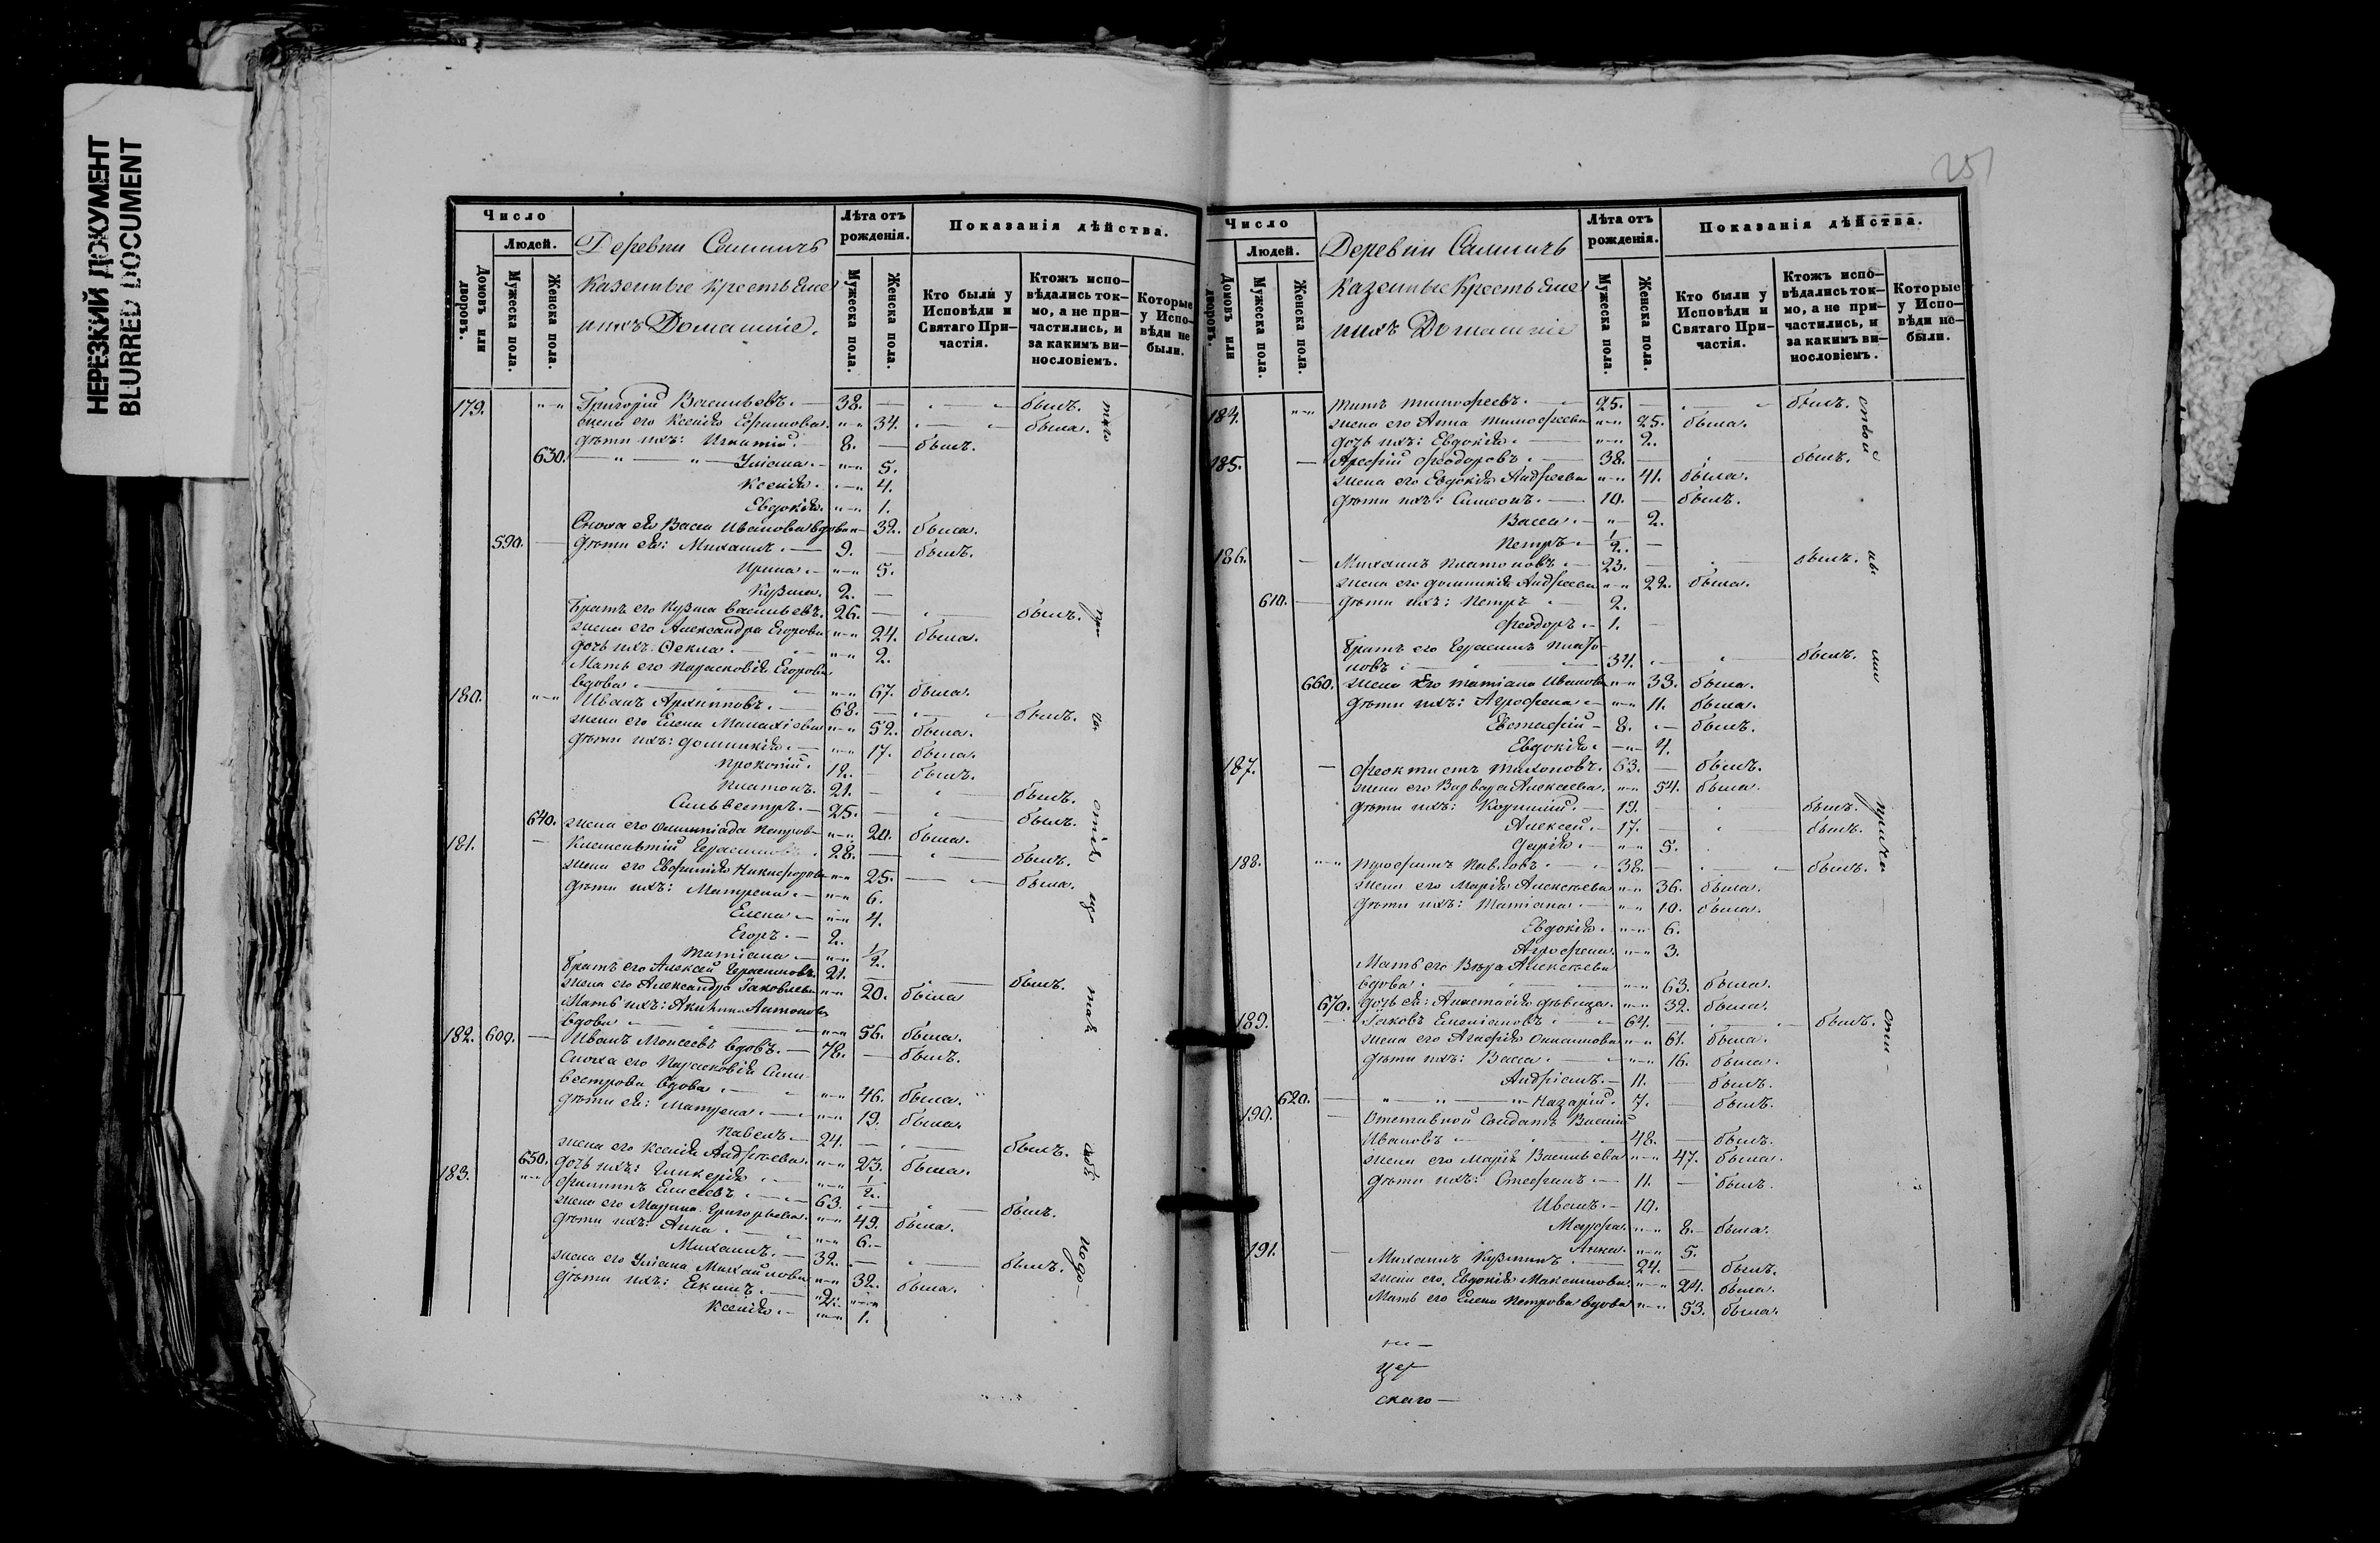 НЕРЕЗКИЙ ДОКУМЕНТ
BLURRED DOCUMENT
Число
Людей.
Домовъ или дворовъ.
Мужеска пола.
Женска пола.
Деревни
Казенные Крестьяне
ихъ Домашніе.
Лѣта отъ рожденія.
Мужеска пола.
Женска пола.
Показанія дѣйства.
Кто были у Исповѣди и Святаго Причастія.
Ктожъ исповѣдались токмо, а не причастились, и за какимъ винословіемъ.
Которые у Исповѣди не были.
179. Григорій Васильевъ. 38. былъ.
жена его Ксенія Ефимова. 34. была.
дѣти ихъ: Игнатій. 8. былъ.
630. Уліана. 5.
Ксенія. 4.
Евдокія. 1.
Сноха его Васса Иванова вдова 32. была.
590. дѣти ея: Михаилъ. 9. былъ.
Ирина. 5.
Кузма. 2.
братъ его Кузма Васильевъ. 26. былъ.
жена его Александра Егорова 24. была.
дочь ихъ Фекла. 2.
Мать его Парасковія Егорова
вдова 67. была.
180. Иванъ Архиповъ. 68. былъ.
жена его Елена Малахіева 52. была.
дѣти ихъ: Домникія. 17. была.
Прокопій. 12. былъ.
Платонъ. 21. былъ.
Сильвестръ. 25. былъ.
640. жена его Олимпіада Петрова 20. была.
181. Климентій Герасимовъ. 28. былъ.
жена его Евфимія Никифорова 25. была.
дѣти ихъ: Матрена. 6.
Елена. 4.
Егоръ. 2.
Татіана. 1/2.
братъ его Алексей Герасимовъ. 21. былъ.
жена его Александра Іаковлева 20. была
Мать ихъ: Акилина Антонова
вдова 56. была.
182. 600. Иванъ Моисеевъ вдовъ. 78. былъ.
Сноха его Парасковія Силь-
вестрова вдова 46. была.
дѣти ея: Матрена. 19. была.
Павелъ. 24. былъ.
жена его Ксенія Андреева. 23. была.
650. дочь ихъ: Гликерія 1/2.
183. Филиппъ Елисеевъ. 63. былъ.
жена его Марина Григорьева. 49. была.
дѣти ихъ: Анна. 6.
Михаилъ. 32. былъ.
жена его Уліана Михайлова 32. была.
дѣти ихъ: 2.
Ксенія. 1.
251
Число
Людей.
Домовъ или дворовъ.
Мужеска пола.
Женска пола.
Деревни
Казенные Крестьяне
ихъ Домашніе
Лѣта отъ рожденія.
Мужеска пола.
Женска пола.
Показанія дѣйства.
Кто были у Исповѣди и Святаго Причастія.
Ктожъ исповѣдались токмо, а не причастились, и за какимъ винословіемъ.
Которые у Исповѣди не были.
184. Титъ Тимофеевъ. 25. былъ.
жена его Анна Тимофеева 25. была.
дочь ихъ: Евдокія. 2.
185. Арефій Феодоровъ. 38. былъ.
жена его Евдокія Андреева 41. была.
дѣти ихъ: Симеонъ. 10. былъ.
Васса. 2.
Петръ. 1/2.
186. Михаилъ Платоновъ. 23. былъ.
жена его Домникія Андреева 22. была.
610. дѣти ихъ: Петръ 2.
Феодоръ. 1.
братъ его Герасимъ Плато-
новъ 34. былъ.
660. жена его Татіана Иванова 33. была.
дѣти ихъ: Агрофена. 11. была.
Евстафій 8. былъ.
Евдокія. 4.
187. Феоктистъ Тихоновъ. 63. былъ.
жена его Варвара Алексеева. 54. была.
дѣти ихъ: Корнилій. 19. былъ.
Алексей. 17. былъ.
Дарія. 5.
188. Трофимъ Павловъ. 38. былъ.
жена его Марія Алексѣева 36. была.
дѣти ихъ: Татіана. 10. была.
Евдокія. 6.
Агрофена. 3.
Мать его Вера Алексѣева
вдова 63. была.
670. дочь ея: Анастасія дѣвица. 32. была.
189. Іаковъ Емеліановъ 64. былъ.
жена его Агафія 61. была.
дѣти ихъ: Васса. 16. была.
Андріанъ. 11. былъ.
620. Назарій. 7. былъ.
190. Отставной Солдатъ Василій
Ивановъ 48. былъ.
жена его Марія Васильева 47. была.
дѣти ихъ: Стефанъ. 11. былъ.
Иванъ. 10.
Марфа. 8. была.
Анна. 5.
191. Михаилъ Кузминъ. 24. былъ.
жена его Евдокія Максимова. 24. была.
Мать его Елена Петрова вдова 53. была.
скаго